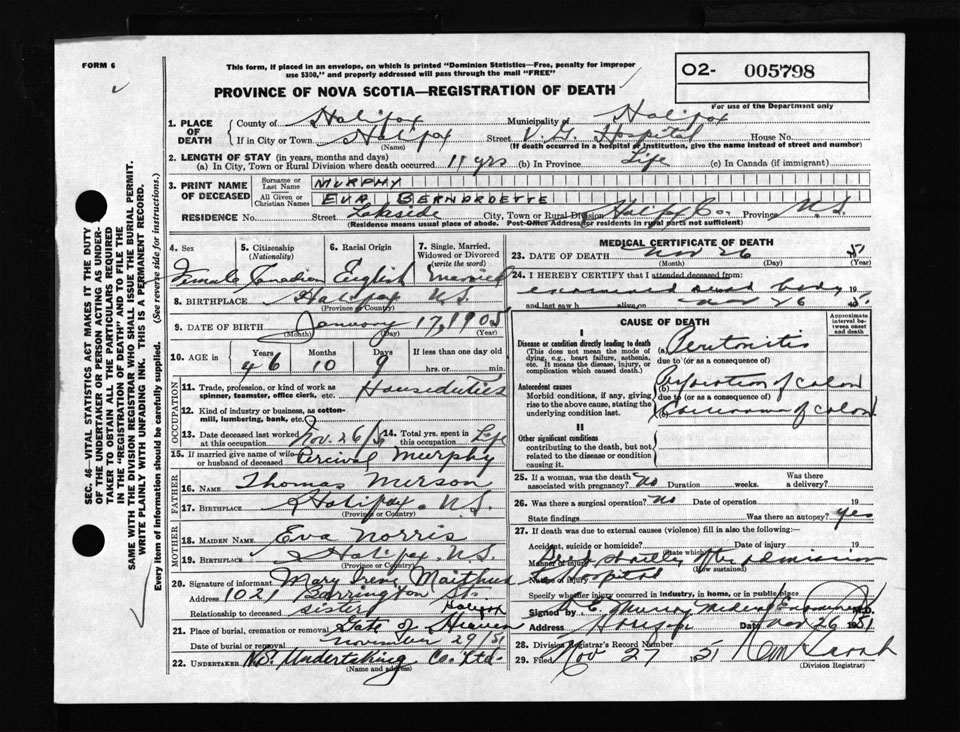 FORM 6
This form, if placed in an envelope, on which is printed "Dominion Statistics—Free, penalty for improper
use $300," and properly addressed will pass through the mail "FREE"
O2- 005798
PROVINCE OF NOVA SCOTIA—REGISTRATION OF DEATH
For use of the Department only
1. PLACE OF DEATH
County of Halifax Municipality of Halifax
If in City or Town Halifax Street V.G. Hospital House No.
(Name) (If death occurred in a hospital or institution, give the name instead of street and number)
2. LENGTH OF STAY (in years, months and days)
(a) In City, Town or Rural Division where death occurred 11 yrs (b) In Province Life (c) In Canada (if immigrant)
3. PRINT NAME OF DECEASED
Surname or Last Name MURPHY
All Given or Christian Names EVA BERNARDETTE
RESIDENCE No. Street Lakeside City, Town or Rural Division Halifax Co. Province N.S.
(Residence means usual place of abode. Post-Office Address for residents in rural parts not sufficient)
4. Sex Female
5. Citizenship (Nationality) Canadian
6. Racial Origin English
7. Single, Married, Widowed or Divorced (write the word) married
8. BIRTHPLACE Halifax N.S.
(Province or Country)
9. DATE OF BIRTH January 17, 1905
(Month) (Day) (Year)
10. AGE in Years Months Days If less than one day old
46 10 9 hrs. or min.
OCCUPATION
11. Trade, profession, or kind of work as
spinner, teamster, office clerk, etc. Houseduties
12. Kind of industry or business, as cotton-
mill, lumbering, bank, etc.
13. Date deceased last worked at this occupation Nov. 26/51
14. Total yrs. spent in this occupation Life
15. If married give name of wife
or husband of deceased Percival Murphy
FATHER
16. NAME Thomas Merson
17. BIRTHPLACE Halifax N.S.
(Province or Country)
MOTHER
18. MAIDEN NAME Eva Norris
19. BIRTHPLACE Halifax N.S.
(Province or Country)
20. Signature of informant Mary Irene
Address 1021 Barrington St. Halifax
Relationship to deceased sister
21. Place of burial, cremation or removal Gate of Heaven
Date of burial or removal November 29/51
22. UNDERTAKER N.S. Undertaking Co. Ltd.
(Name and address)
MEDICAL CERTIFICATE OF DEATH
23. DATE OF DEATH Nov 26 5
(Month) (Day) (Year)
24. I HEREBY CERTIFY that I attended deceased from:
examined dead body
and last saw h alive on Nov 26 195
CAUSE OF DEATH
Approximate interval between onset and death
I
Disease or condition directly leading to death
(This does not mean the mode of
dying, e.g., heart failure, asthenia,
etc. It means the disease, injury, or
complication which caused death.)
(a) Peritonitis
due to (or as a consequence of)
Antecedent causes
Morbid conditions, if any, giving
rise to the above cause, stating the
underlying condition last.
(b) Perforation of colon
due to (or as a consequence of)
Carcinoma of colon
II
Other significant conditions
contributing to the death, but not
related to the disease or condition
causing it.
25. If a woman, was the death
associated with pregnancy? No Duration weeks. Was there a delivery?
26. Was there a surgical operation? No Date of operation 19
State findings Was there an autopsy? yes
27. If death was due to external causes (violence) fill in also the following:
Accident, suicide or homicide? Date of injury 19
(State which)
Manner of injury Died shortly after admission
(How sustained)
Nature of injury to hospital
Specify whether injury occurred in industry, in home, or in public place
Signed by Murray Medical Examiner M.D.
Address Date Nov 26 1951
28. Division Registrar's Record Number
29. Filed Nov 27 1951
(Division Registrar)
SEC. 46 VITAL STATISTICS ACT MAKES IT THE DUTY
OF THE UNDERTAKER OR PERSON ACTING AS UNDER-
TAKER TO OBTAIN ALL THE PARTICULARS REQUIRED
IN THE "REGISTRATION OF DEATH" AND TO FILE THE
SAME WITH THE DIVISION REGISTRAR WHO SHALL ISSUE THE BURIAL PERMIT.
WRITE PLAINLY WITH UNFADING INK. THIS IS A PERMANENT RECORD.
Every item of information should be carefully supplied. (See reverse side for instructions.)